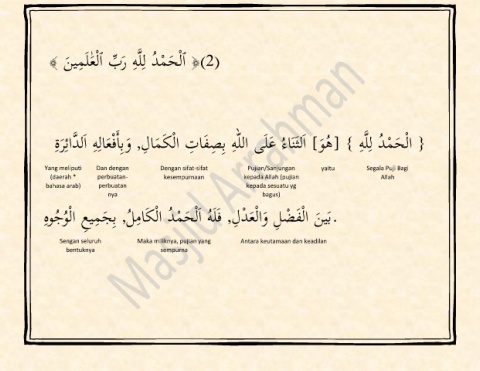 (2)﴿ ٱلْحَمْدُ لِلَّهِ رَبِّ ٱلْعَٰلَمِينَ ﴾
{ الْحَمْدُ لِلَّهِ } [هُوَ] اَلثَنَاءُ عَلَى اللهِ بِصِفَاتِ الْكَمَالِ, وَبِأَفْعَالِهِ اَلدَّائِرَةِ
Segala Puji Bagi Allah
yaitu
Pujian/Sanjungan kepada Allah (pujian kepada sesuatu yg bagus)
Dengan sifat-sifat kesempurnaan
Dan dengan perbuatan-perbuatan nya
Yang meliputi (daerah * bahasa arab)
بَيَن الْفَضْلِ وَالْعَدْلِ, فَلَهُ اَلْحَمْدُ الْكَامِلُ, بِجَمِيعِ الْوُجُوهِ.
Antara keutamaan dan keadilan
Maka miliknya, pujian yang sempurna
Sengan seluruh bentuknya
Masjid Arrahman